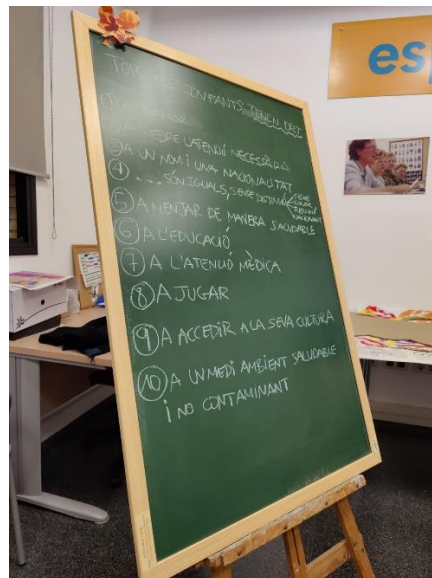 TOTS INFANTS TENEN DRET
①
② REBRE L'ATENCIÓ NECESSÀRIA
③ A UN NOM I UNA NACIONALITAT
④ ... SÓN IGUALS, SENSE DISTINCIÓ SEXE
COLOR
RELIGIÓ
NACIONALITAT
⑤ A MENJAR DE MANERA SALUDABLE
⑥ A L'EDUCACIÓ
⑦ A L'ATENCIÓ MÈDICA
⑧ A JUGAR
⑨ A ACCEDIR A LA SEVA CULTURA
⑩ A UN MEDI AMBIENT SALUDABLE
I NO CONTAMINANT
esp